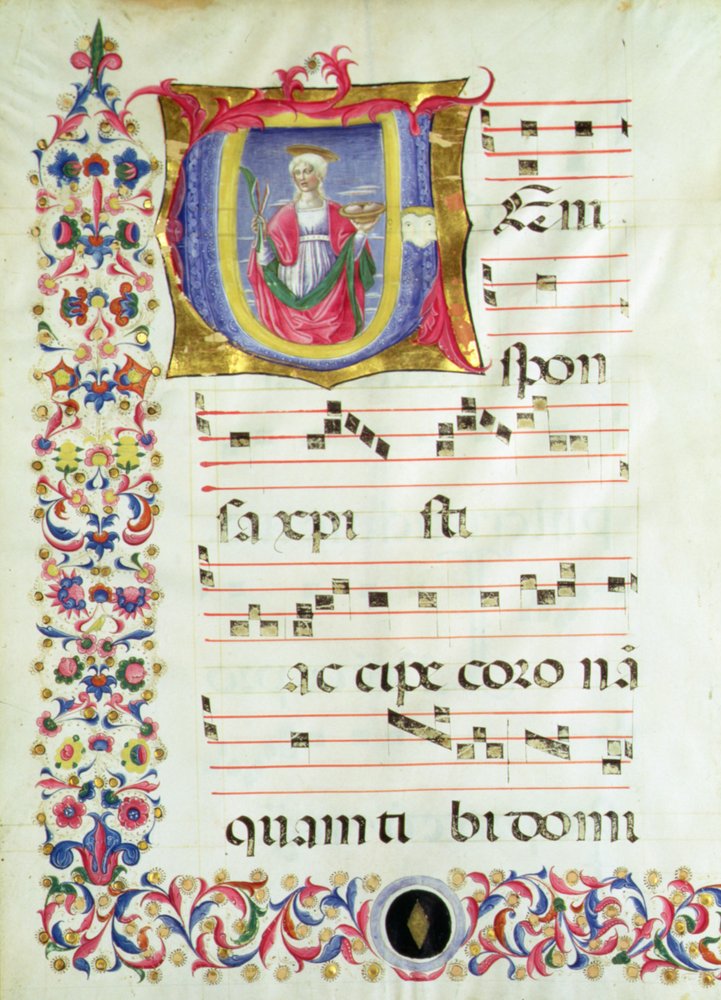 VEni
spon
sa xpi sti
ac cipe coro nã
quam ti bi domi